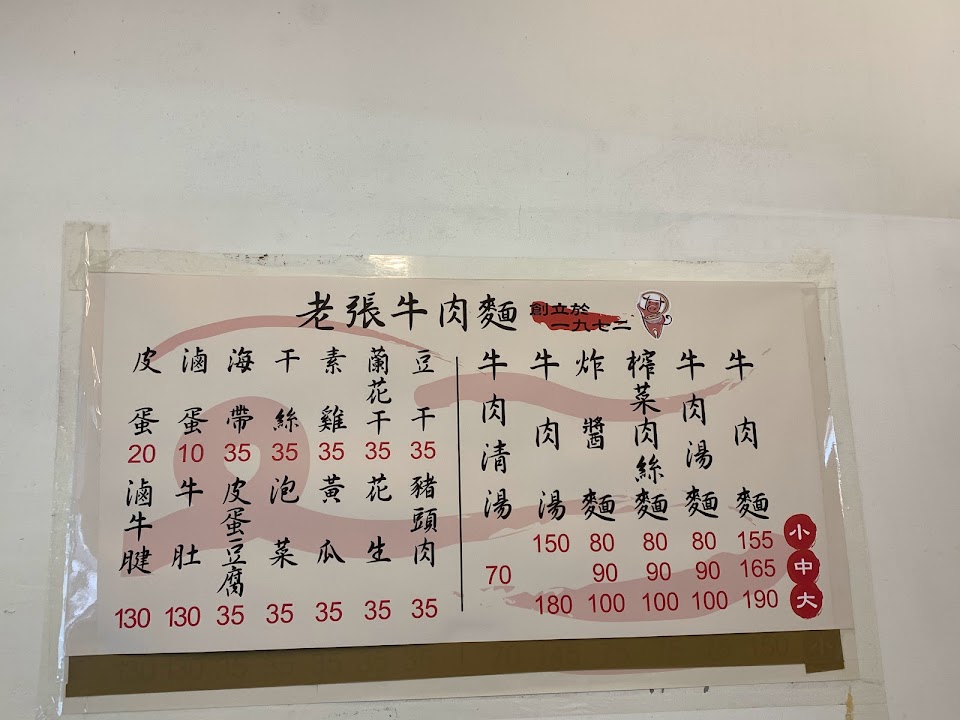 老張牛肉麵
創立於
一九七二
小
中
大
牛肉麵
155
165
190
牛肉湯麵
80
90
100
榨菜肉絲麵
80
90
100
炸醬麵
80
90
100
牛肉湯
150
180
牛肉清湯
70
豆干
35
蘭花干
35
素雞
35
干絲
35
海帶
35
滷蛋
10
皮蛋
20
豬頭肉
35
花生
35
黃瓜
35
泡菜
35
皮蛋豆腐
35
牛肚
130
滷牛腱
130